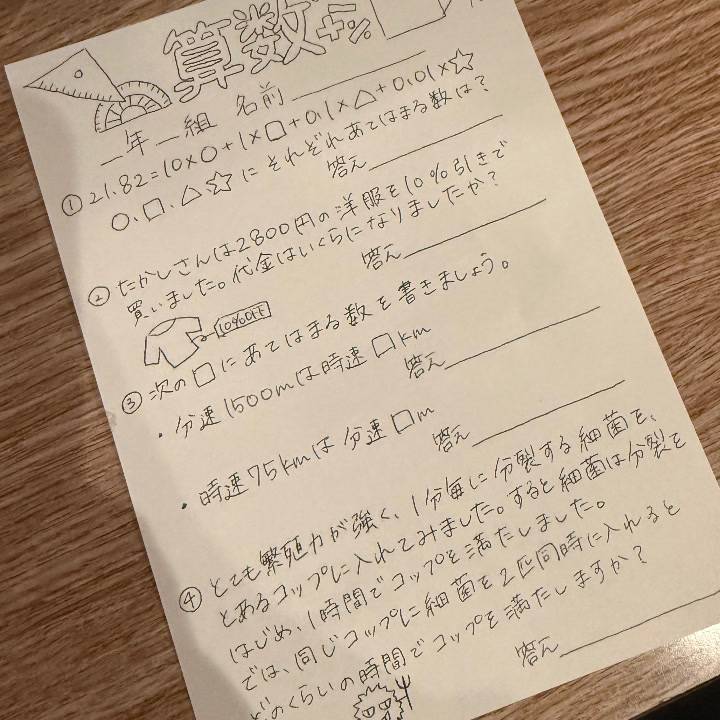 算数
＿年＿組 名前＿＿＿
① 21.82=10×○+1×□+0.1×△+0.01×☆
○、□、△、☆にそれぞれあてはまる数は?
答え
② たかしさんは2800円の洋服を10%引きで
買いました。代金はいくらになりましたか?
答え
10%OFF
③ 次の□にあてはまる数を書きましょう。
・分速1500mは時速□km
答え
・時速75kmは分速□m
答え
④ とても繁殖力が強く、1分毎に分裂する細菌を、
とあるコップに入れてみました。すると細菌は分裂を
はじめ、1時間でコップを満たしました。
では、同じコップに細菌を2匹同時に入れると
どのくらいの時間でコップを満たしますか?
答え